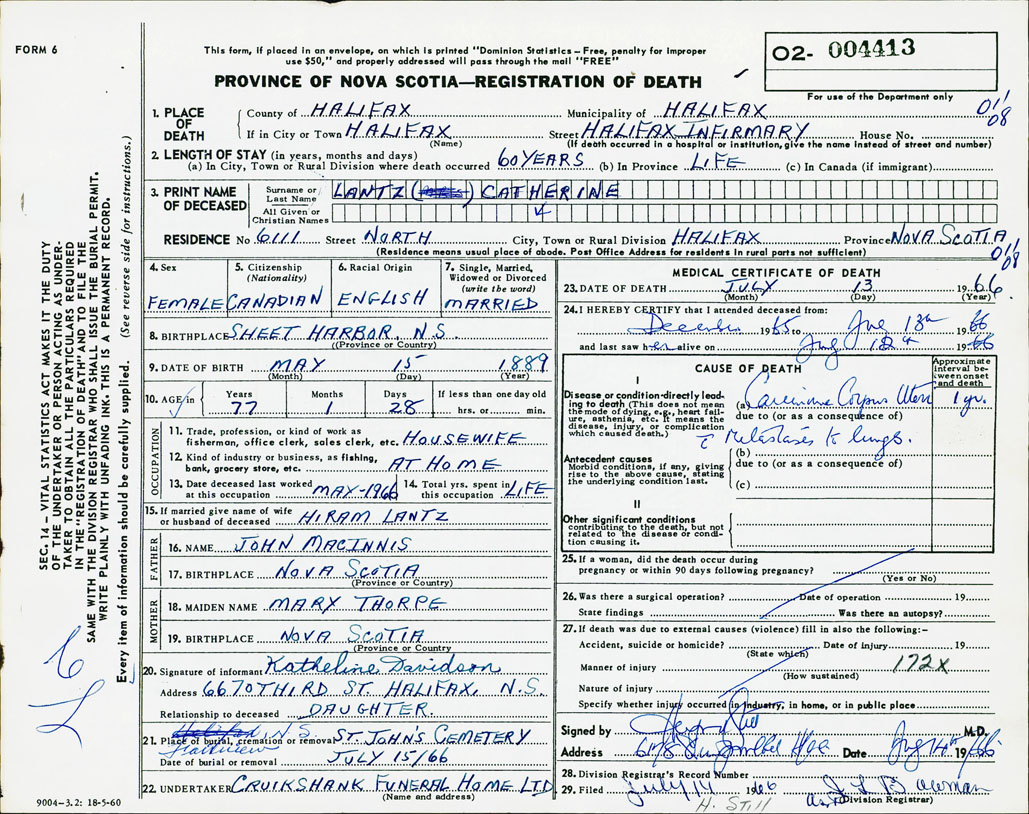 FORM 6
This form, if placed in an envelope, on which is printed "Dominion Statistics – Free, penalty for improper
use $50," and properly addressed will pass through the mail "FREE"
O2- 004413
PROVINCE OF NOVA SCOTIA—REGISTRATION OF DEATH
For use of the Department only
1. PLACE OF DEATH
County of HALIFAX Municipality of HALIFAX 011/08
If in City or Town HALIFAX Street HALIFAX INFIRMARY House No.
(Name) (If death occurred in a hospital or institution, give the name instead of street and number)
2. LENGTH OF STAY (in years, months and days)
(a) In City, Town or Rural Division where death occurred 60 YEARS (b) In Province LIFE (c) In Canada (if immigrant)
3. PRINT NAME OF DECEASED
Surname or Last Name LANTZ ( ) CATHERINE
All Given or Christian Names
RESIDENCE No 6111 Street NORTH City, Town or Rural Division HALIFAX Province NOVA SCOTIA
(Residence means usual place of abode. Post Office Address for residents in rural parts not sufficient) 011/08
4. Sex FEMALE
5. Citizenship (Nationality) CANADIAN
6. Racial Origin ENGLISH
7. Single, Married, Widowed or Divorced (write the word) MARRIED
8. BIRTHPLACE SHEET HARBOR, N.S.
(Province or Country)
9. DATE OF BIRTH MAY 15 1889
(Month) (Day) (Year)
10. AGE in Years Months Days If less than one day old
77 1 28 hrs. or min.
OCCUPATION
11. Trade, profession, or kind of work as
fisherman, office clerk, sales clerk, etc. HOUSEWIFE
12. Kind of industry or business, as fishing,
bank, grocery store, etc. AT HOME
13. Date deceased last worked at this occupation MAY-1966
14. Total yrs. spent in this occupation LIFE
15. If married give name of wife
or husband of deceased HIRAM LANTZ
FATHER
16. NAME JOHN MACINNIS
17. BIRTHPLACE NOVA SCOTIA
(Province or Country)
MOTHER
18. MAIDEN NAME MARY THORPE
19. BIRTHPLACE NOVA SCOTIA
(Province or Country
20. Signature of informant Katheline Davidson
Address 6670 THIRD ST. HALIFAX, N.S.
Relationship to deceased DAUGHTER.
Halifax, N.S.
21. Place of burial, cremation or removal ST. JOHN'S CEMETERY
Fairview
Date of burial or removal JULY 15/66
22. UNDERTAKER CRUIKSHANK FUNERAL HOME LTD
(Name and address)
MEDICAL CERTIFICATE OF DEATH
23. DATE OF DEATH JULY 13 1966
(Month) (Day) (Year)
24. I HEREBY CERTIFY that I attended deceased from:
December 1965 to July 13th 1966
and last saw her alive on July 12th 1966
CAUSE OF DEATH
Approximate interval between onset and death
I
Disease or condition directly leading to death (This does not mean the mode of dying, e.g., heart failure, asthenia, etc. It means the disease, injury, or complication which caused death.)
(a) Carcinoma Corpus Uteri 1 yr.
due to (or as a consequence of)
c̄ Metastases to lungs.
Antecedent causes
Morbid conditions, if any, giving rise to the above cause, stating the underlying condition last.
(b)
due to (or as a consequence of)
(c)
II
Other significant conditions
contributing to the death, but not related to the disease or condition causing it.
25. If a woman, did the death occur during
pregnancy or within 90 days following pregnancy?
(Yes or No)
26. Was there a surgical operation? Date of operation 19
State findings Was there an autopsy?
27. If death was due to external causes (violence) fill in also the following:–
Accident, suicide or homicide? Date of injury 19
(State which)
Manner of injury 172X
(How sustained)
Nature of injury
Specify whether injury occurred in industry, in home, or in public place
Signed by M.D.
Address 6178 Date July 14th 1966
28. Division Registrar's Record Number
29. Filed July 14 1966 Bowman
H. Still
Division Registrar)
SEC. 14 – VITAL STATISTICS ACT MAKES IT THE DUTY
OF THE UNDERTAKER OR PERSON ACTING AS UNDER-
TAKER TO OBTAIN ALL THE PARTICULARS REQUIRED
IN THE "REGISTRATION OF DEATH" AND TO FILE THE
SAME WITH THE DIVISION REGISTRAR WHO SHALL ISSUE THE BURIAL PERMIT.
WRITE PLAINLY WITH UNFADING INK. THIS IS A PERMANENT RECORD.
Every item of information should be carefully supplied. (See reverse side for instructions.)
9004–3.2: 18-5-60